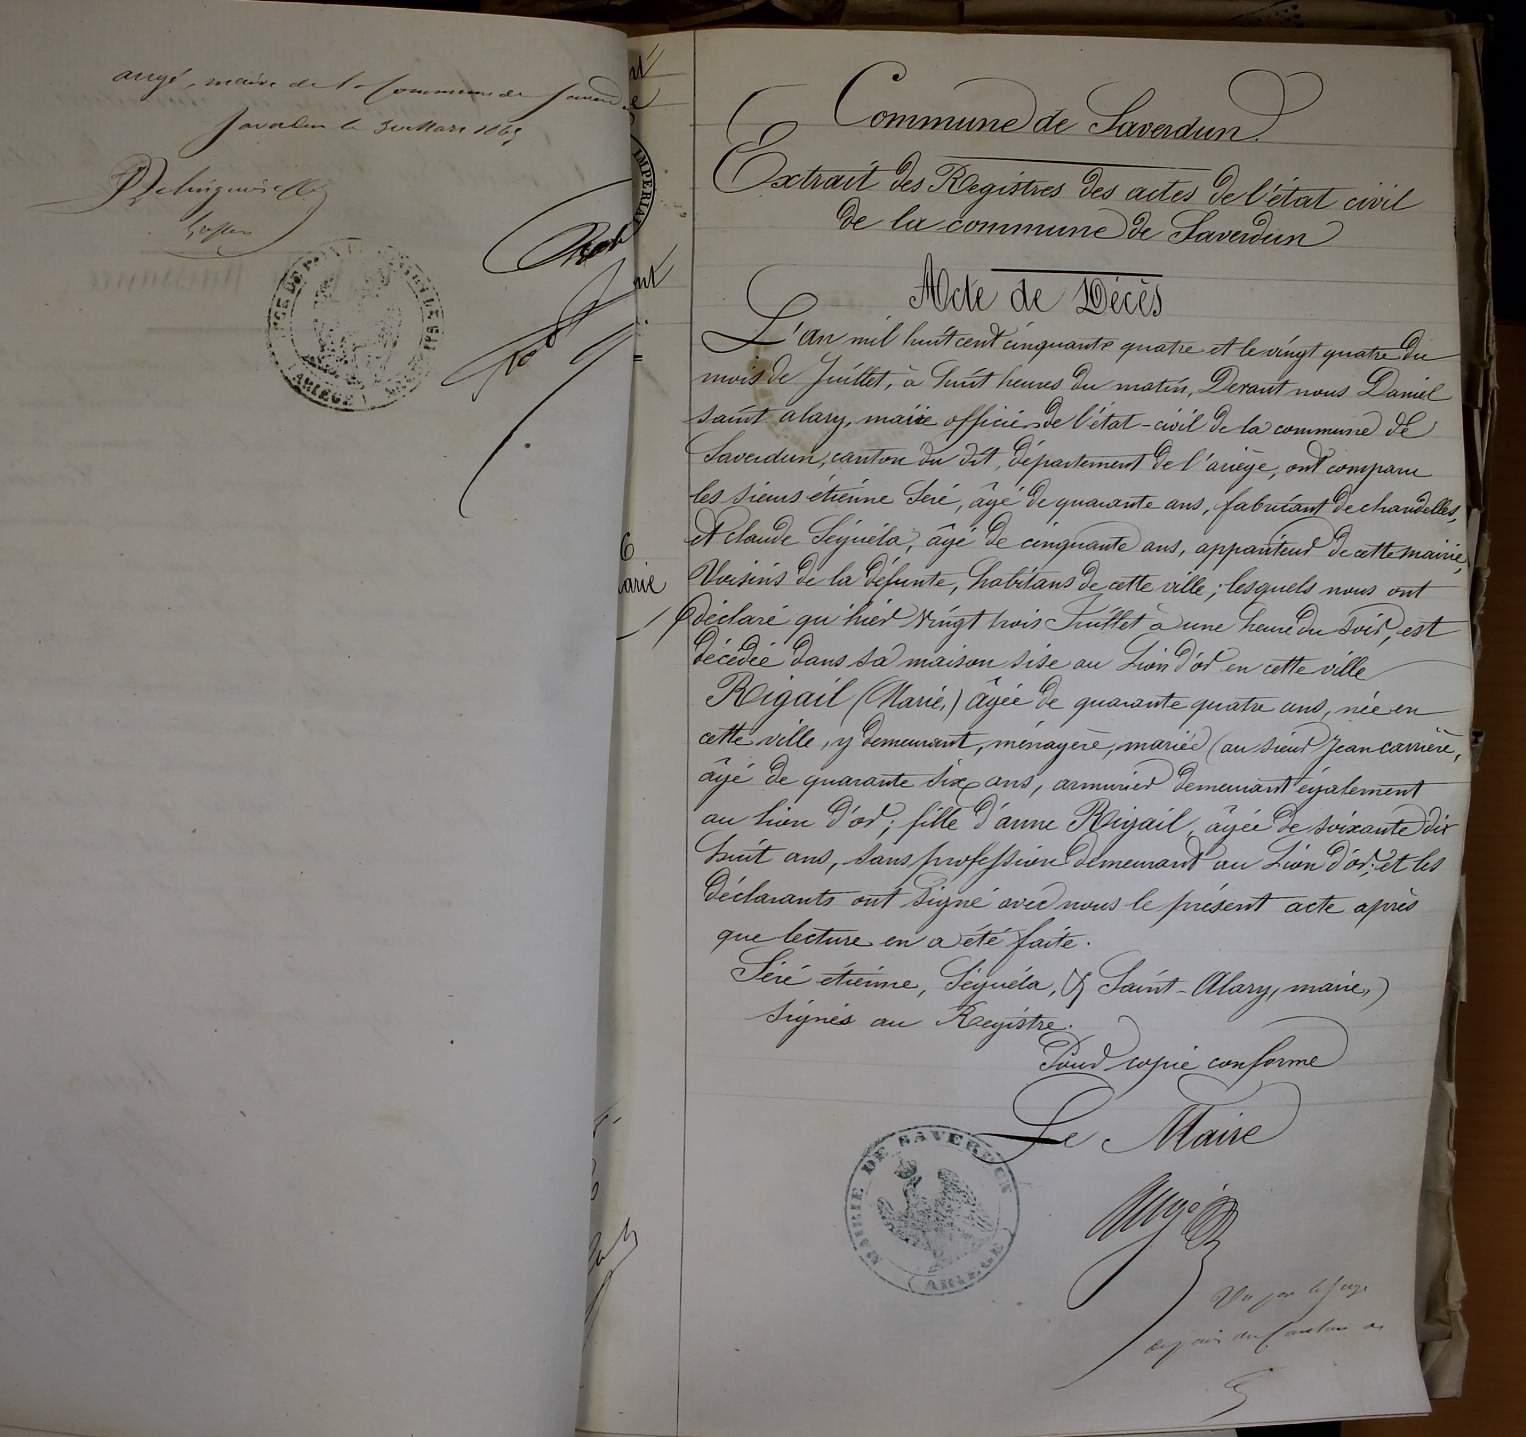 augé, maire de la Commune de
Saverdun le 30 Mars 1865
ARIEGE
IMPERIAL
nt
arie
Commune de Saverdun
Extrait des Registres des actes de l'état civil
de la commune de Saverdun
Acte de Décès
L'an mil huit cent cinquante quatre et le vingt quatre du
mois de Juillet, à huit heures du matin, Devant nous Daniel
saint alary, maire officier de l'état-civil de la commune de
Saverdun, canton du dit, département de l'ariège, ont comparu
les sieurs étienne Seré, âgé de quarante ans, fabricant de chandelles,
et claude Séguéla, âgé de cinquante ans, appariteur de cette mairie,
Voisins de la défunte, habitans de cette ville; lesquels nous ont
déclaré qu'hier vingt trois Juillet à une heure du soir, est
décédée dans sa maison sise au Lion d'or en cette ville
Rigail (Marie,) âgée de quarante quatre ans, née en
cette ville, y demeurant, ménagère, mariée au sieur Jean carrière,
âgé de quarante six ans, armurier demeurant également
au Lion d'or; fille d'anne Rigail, âgée de soixante dix
huit ans, sans profession demeurant au Lion d'or; et les
déclarants ont signé avec nous le présent acte après
que lecture en a été faite.
Séré étienne, Séguéla, & Saint-Alary, maire,)
signés au Registre.
Pour copie conforme
Le Maire
MAIRIE DE SAVERDUN
(ARIEGE)
Augé
Vu par le Juge
de paix du Canton de